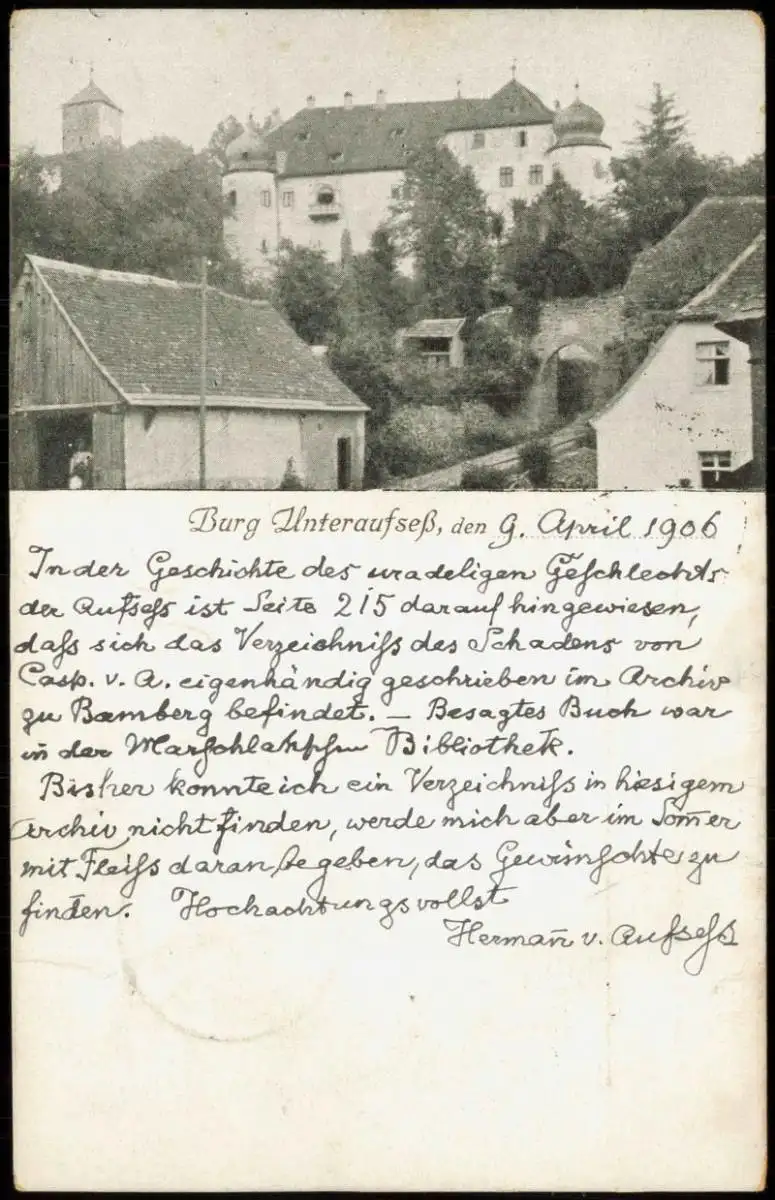 Burg Unteraufseß, den 9. April 1906
In der Geschichte des uradeligen Geschlechts
der Aufsess ist Seite 215 darauf hingewiesen,
dass sich das Verzeichniss des Schadens von
Casp. v. A. eigenhändig geschrieben im Archiv
zu Bamberg befindet. – Besagtes Buch war
in der Bibliothek.
Bisher konnte ich ein Verzeichniss in hiesigem
Archiv nicht finden, werde mich aber im Som̄er
mit Fleiss daran begeben, das Gewünschte zu
finden. Hochachtungsvollst
Herman̄ v. Aufseſs